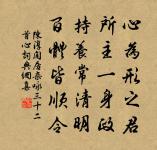 心為形之君
所主一身政
持養常清明
百體皆順令
陳淳閑居雜詠三十二
首心詞典網集